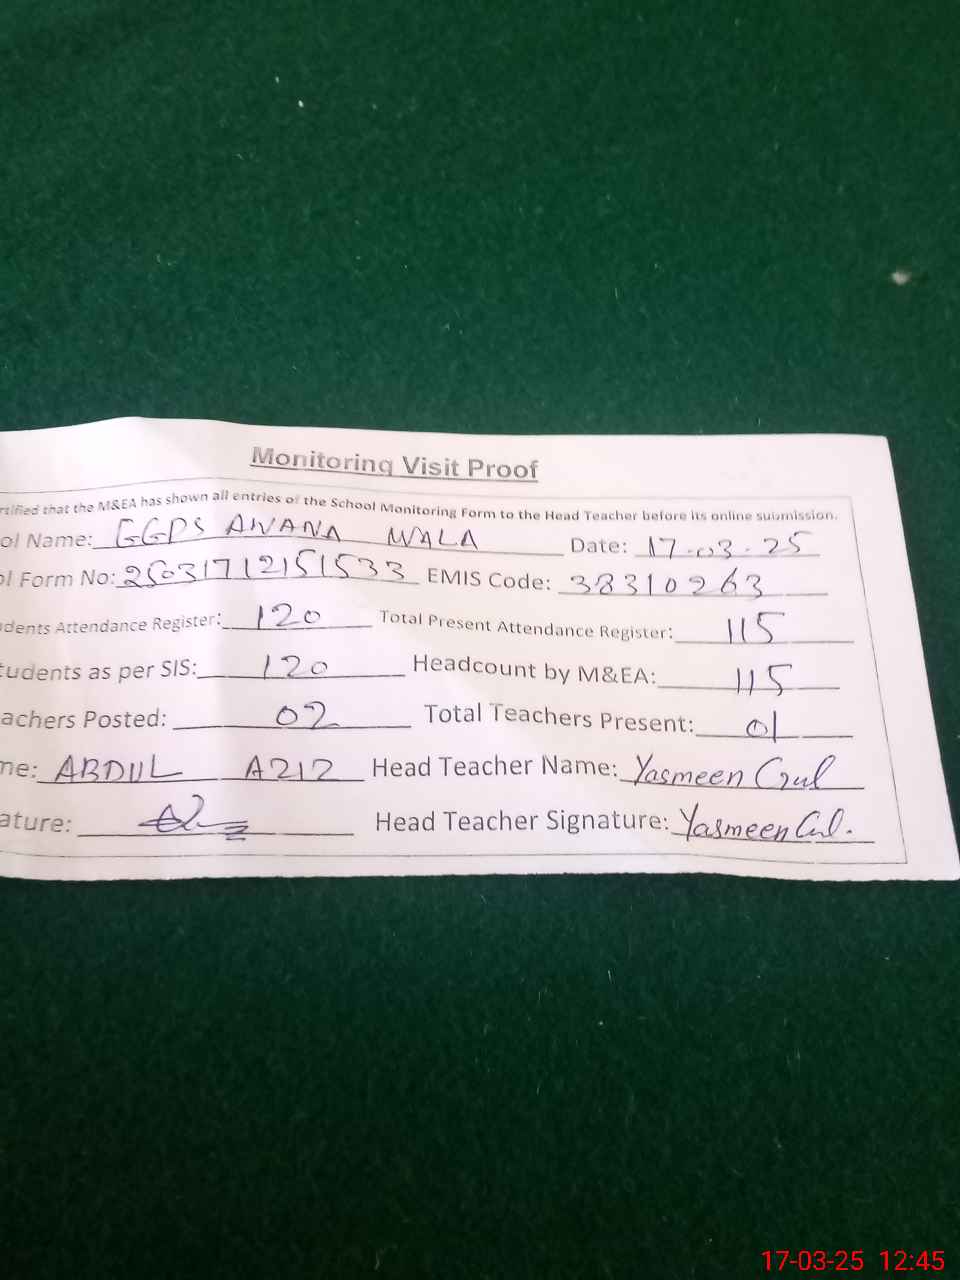 Monitoring Visit Proof
rtified that the M&EA has shown all entries of the School Monitoring Form to the Head Teacher before its online submission.
ol Name: GGPS AWANA WALA Date: 17-03-25
ol Form No: 25031712151533 EMIS Code: 38310263
udents Attendance Register: 120 Total Present Attendance Register: 115
tudents as per SIS: 120 Headcount by M&EA: 115
achers Posted: 02 Total Teachers Present: 01
me: ABDUL AZIZ Head Teacher Name: Yasmeen Gul
ature: Head Teacher Signature: Yasmeen Gul.
17-03-25 12:45